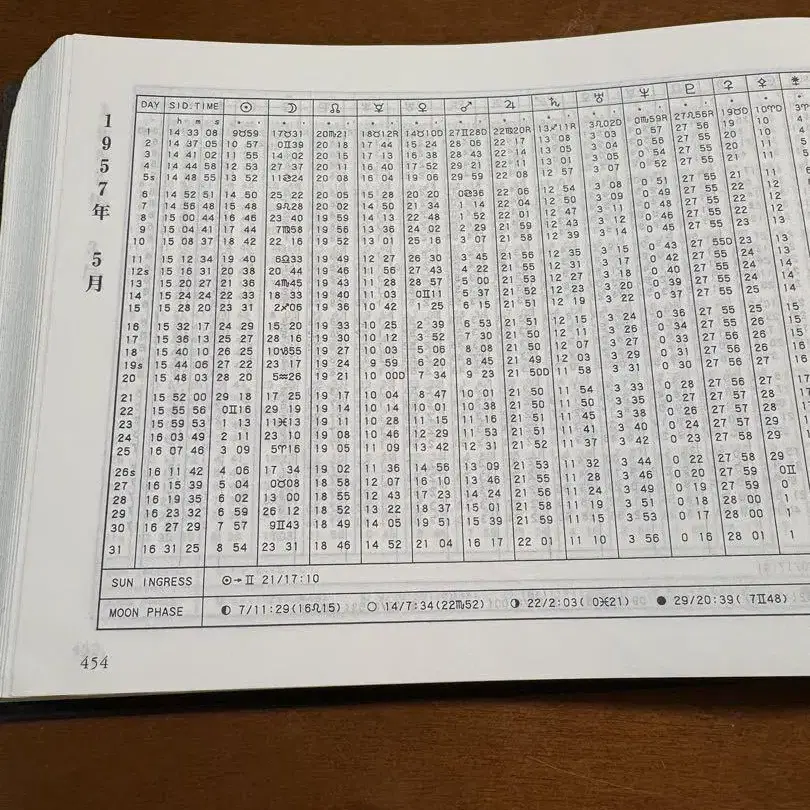 1957年 5月
DAY SID.TIME ☉ ☽ ☊ ☿ ♀ ♂ ♃ ♄ ♅ ♆ ♇
h m s
1 14 33 08 9♉59 17♉31 20♏21 18♉12R 14♉10D 27♊28D 22♍20R 13♐11R 3♌02D 0♏59R 27♌56R 19♉D 10♈D
2 14 37 05 10 57 0♊39 20 18 17 44 15 24 28 06 22 17 13 08 3 03 0 57 27 56 19 10 4
3 14 41 02 11 55 14 02 20 15 17 13 16 38 28 43 22 14 13 05 3 04 0 56 27 55 20 10 4
4 14 44 58 12 53 27 37 20 11 16 40 17 52 29 21 22 11 13 01 3 05 0 54 27 55 20 11 5
5s 14 48 55 13 52 11♋24 20 08 16 04 19 06 29 59 22 08 12 57 3 07 0 52 27 55 21 11
6 14 52 51 14 50 25 22 20 05 15 28 20 20 0♋36 22 06 12 54 3 08 0 51 27 55 21 12
7 14 56 48 15 48 9♌28 20 02 14 50 21 34 1 14 22 04 12 50 3 09 0 49 27 55 22 12
8 15 00 44 16 46 23 40 19 59 14 13 22 48 1 52 22 01 12 47 3 11 0 48 27 55 22 12
9 15 04 41 17 44 7♍58 19 56 13 36 24 02 2 29 21 59 12 43 3 12 0 46 27 55 22
10 15 08 37 18 42 22 16 19 52 13 01 25 16 3 07 21 58 12 39 3 14 0 45 27 55 23
11 15 12 34 19 40 6♎33 19 49 12 27 26 30 3 45 21 56 12 35 3 15 0 43 27 55D 23 13
12s 15 16 31 20 38 20 44 19 46 11 56 27 43 4 22 21 55 12 31 3 17 0 42 27 55 23 13
13 15 20 27 21 36 4♏45 19 43 11 28 28 57 5 00 21 53 12 27 3 18 0 40 27 55 24 14
14 15 24 24 22 33 18 33 19 40 11 03 0♊11 5 37 21 52 12 23 3 20 0 39 27 55 24 14
15 15 28 20 23 31 2♐06 19 36 10 42 1 25 6 15 21 51 12 19 3 22 0 37 27 55 25
16 15 32 17 24 29 15 20 19 33 10 25 2 39 6 53 21 51 12 15 3 24 0 36 27 55 25 15
17 15 36 13 25 27 28 16 19 30 10 12 3 52 7 30 21 50 12 11 3 26 0 34 27 55 26 15
18 15 40 10 26 25 10♑55 19 27 10 03 5 06 8 08 21 50 12 07 3 27 0 33 27 55 26 15
19s 15 44 06 27 22 23 17 19 24 9 59 6 20 8 45 21 49 12 03 3 29 0 31 27 56 26 16
20 15 48 03 28 20 5♒26 19 21 10 00D 7 34 9 23 21 50D 11 58 3 31 0 30 27 56 27
21 15 52 00 29 18 17 25 19 17 10 04 8 47 10 01 21 50 11 54 3 33 0 28 27 56 27 17
22 15 55 56 0♊16 29 19 19 14 10 14 10 01 10 38 21 50 11 50 3 35 0 27 27 56 27 17
23 15 59 53 1 13 11♓13 19 11 10 28 11 15 11 16 21 51 11 45 3 38 0 26 27 57 28 17
24 16 03 49 2 11 23 10 19 08 10 46 12 29 11 53 21 51 11 41 3 40 0 24 27 57 28
25 16 07 46 3 09 5♈16 19 05 11 09 13 42 12 31 21 52 11 37 3 42 0 23 27 58 29
26s 16 11 42 4 06 17 34 19 02 11 36 14 56 13 09 21 53 11 32 3 44 0 22 27 58 29
27 16 15 39 5 04 0♉08 18 58 12 07 16 10 13 46 21 54 11 28 3 46 0 20 27 59 0♊ 1
28 16 19 35 6 02 13 00 18 55 12 43 17 23 14 24 21 56 11 24 3 49 0 19 27 59 0 1
29 16 23 32 6 59 26 12 18 52 13 22 18 37 15 01 21 58 11 19 3 51 0 18 28 00 0 1
30 16 27 29 7 57 9♊43 18 49 14 05 19 51 15 39 21 59 11 15 3 53 0 17 28 00 1
31 16 31 25 8 54 23 31 18 46 14 52 21 04 16 17 22 01 11 10 3 56 0 16 28 01 1
SUN INGRESS ☉→♊ 21/17:10
MOON PHASE ◐ 7/11:29(16♌15) ○ 14/7:34(22♏52) ◑ 22/2:03( 0♓21) ● 29/20:39( 7♊48)
454